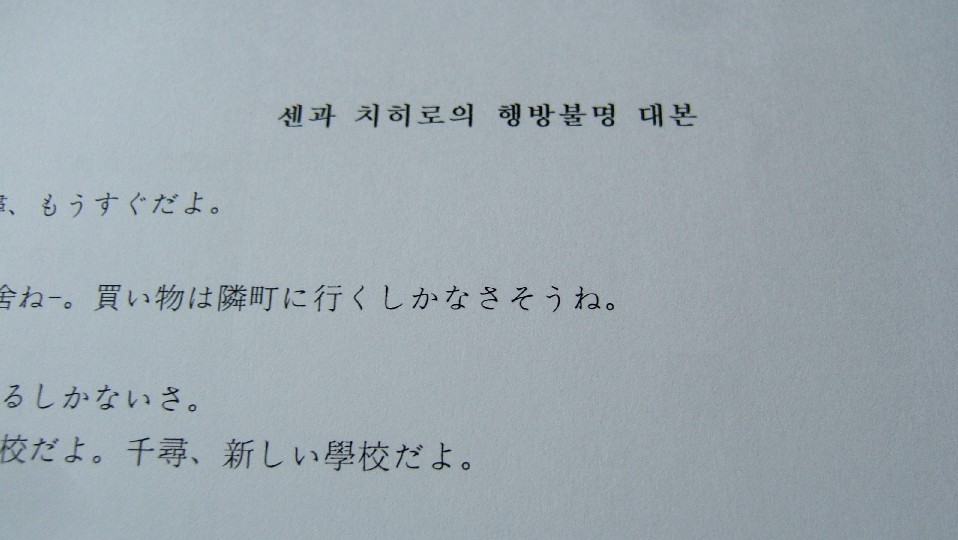 센과 치히로의 행방불명 대본
、もうすぐだよ。
舍ね-。買い物は隣町に行くしかなさそうね。
るしかないさ。
校だよ。千尋、新しい學校だよ。